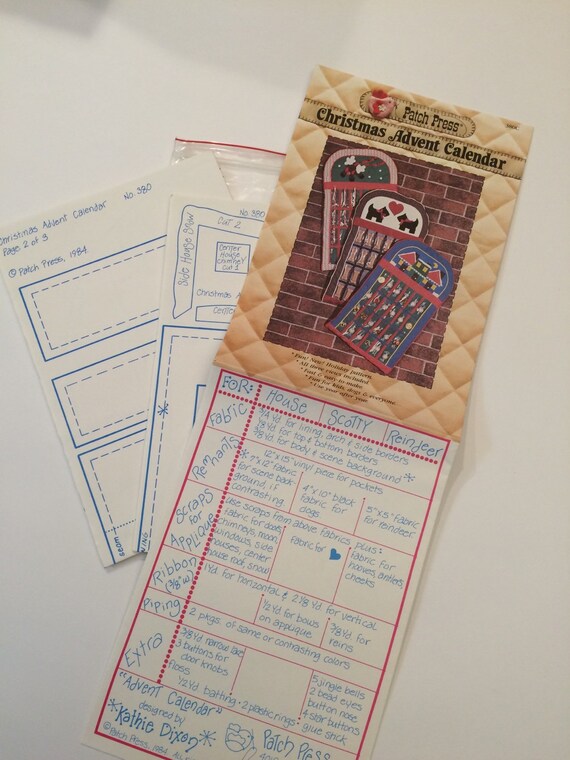 Patch Press
Christmas Advent Calendar
• Fun! New! Holiday pattern.
• All three sizes included
• Fast & easy to make
• Fun for kids, dogs & everyone
• Use year after year
Christmas Advent Calendar No. 380
Page 2 of 3
© Patch Press, 1984
seam
No. 380
Cut 2
Side House Snow
Center
House
chimney
cut 1
Christmas
Center
FOR: HOUSE SCOTTY Reindeer
Fabric
3/4 Yd for lining, arch & side borders
1/8 Yd for top & bottom borders
3/8 Yd for body & scene background *
Remnants
12"x15" vinyl piece for pockets
fabric
for scene back
ground, if
contrasting
4"x10" black
fabric for
dogs
5"x5" fabric
for reindeer
Scraps
for
Applique
use scraps from above fabrics plus:
fabric for door,
chimneys, moon,
windows, side
houses, center
house roof, snow
fabric for ♥
fabric for
hooves, antlers,
cheeks
Ribbon
(3/8" w)
1 Yd for horizontal & 2 1/8 Yd for vertical
1/2 Yd for bows
on applique
3/8 Yd for
reins
Piping
2 pkgs. of same or contrasting colors
Extra
3/8 Yd narrow lace
3 buttons for
door knobs
floss
5 jingle bells
2 bead eyes
button nose
4 star buttons
glue stick
1/2 Yd batting • 2 plastic rings •
"Advent Calendar"
designed by
* Kathie Dixon *
© Patch Press, 1984
Patch Press